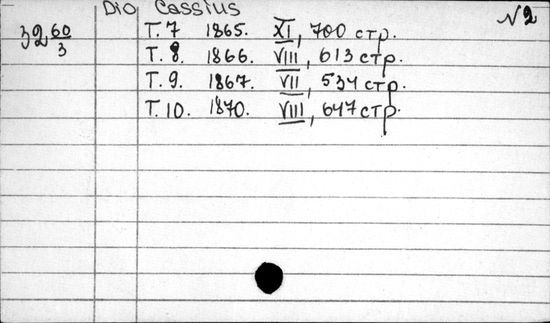 Dio Cassius
N 2
32 60/3
Т. 7 1865. XI, 700 стр.
Т. 8. 1866. VIII, 613 стр.
Т. 9. 1867. VII, 534 стр.
Т. 10. 1870. VIII, 647 стр.